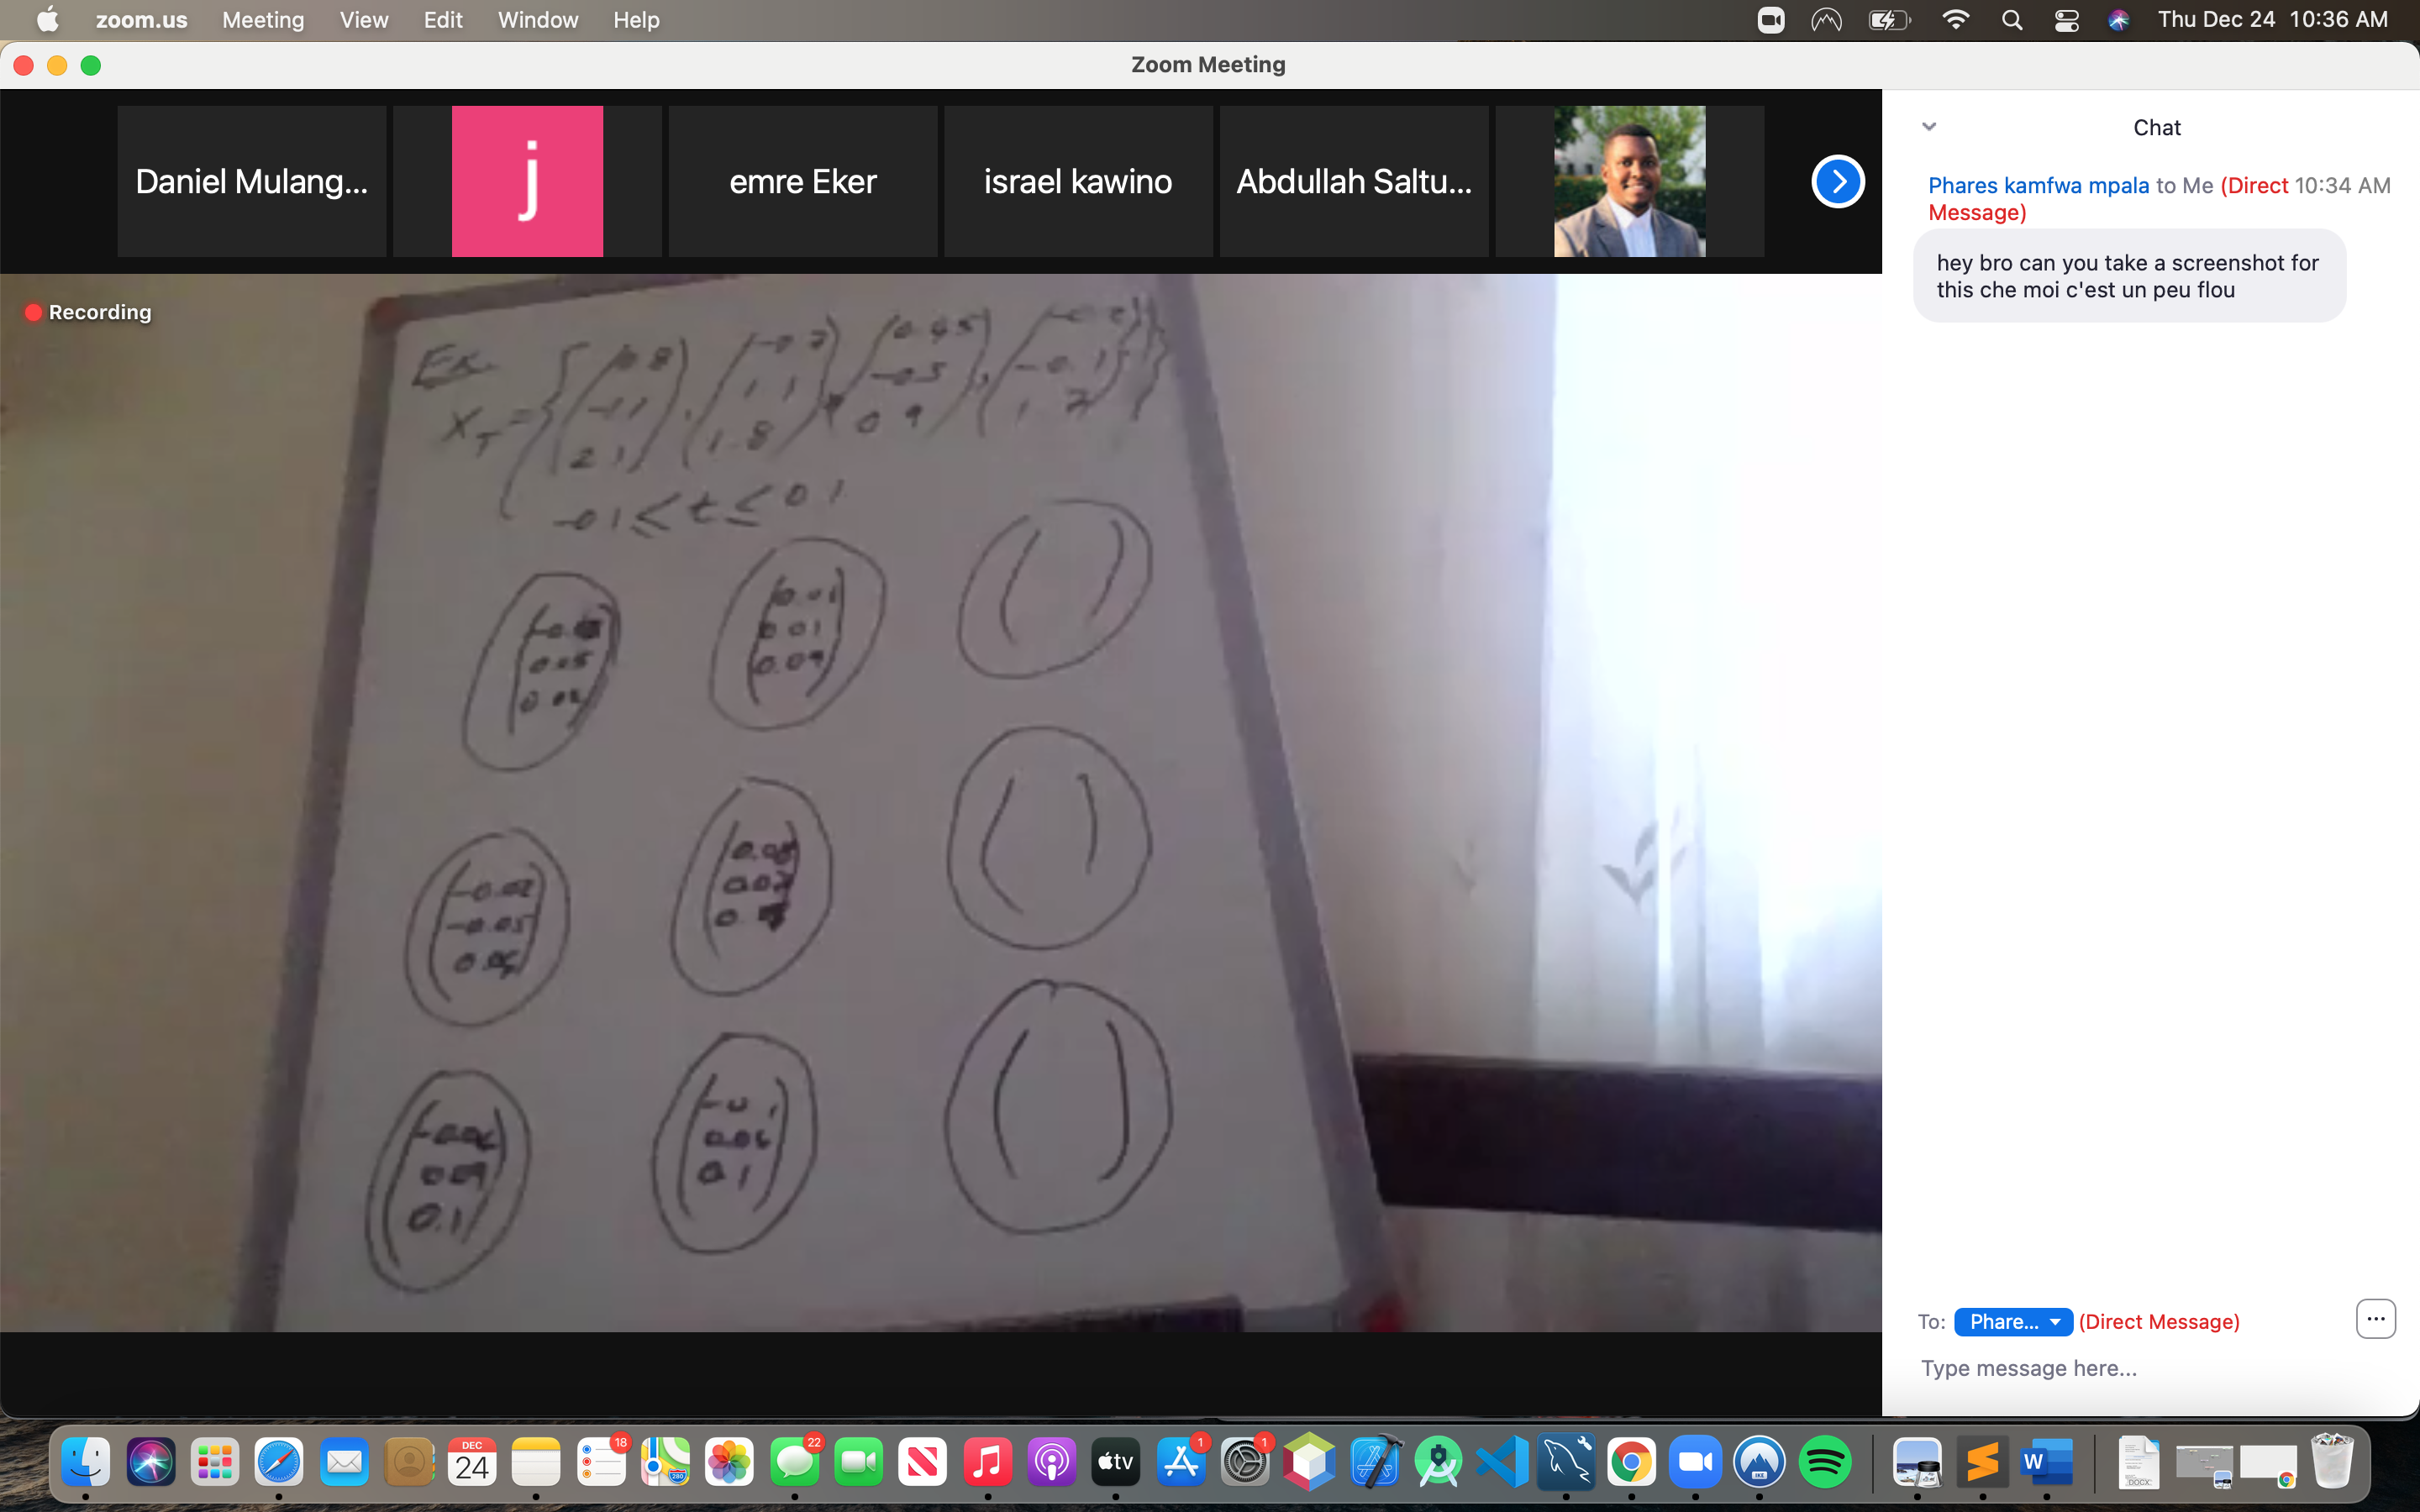 zoom.us Meeting View Edit Window Help
Thu Dec 24 10:36 AM
Zoom Meeting
Daniel Mulang...
j
emre Eker
israel kawino
Abdullah Saltu...
Recording
Ex.
X_T = { ( 0.8 ) , ( -0.7 ) , ( 0.45 ) , (
-1.1 1.1 -0.5 -0.1
2.1 1.8 0.9 1.2
-0.1 ≤ t ≤ 0.1
0.05
0.01
0.01
0.09
-0.02
-0.05
0.09
0.1
0.06
0.1
Chat
Phares kamfwa mpala to Me (Direct 10:34 AM
Message)
hey bro can you take a screenshot for
this che moi c'est un peu flou
To: Phare... (Direct Message)
Type message here...
DEC
24
18
280
22
tv
1
1
IKE
W
DOCX